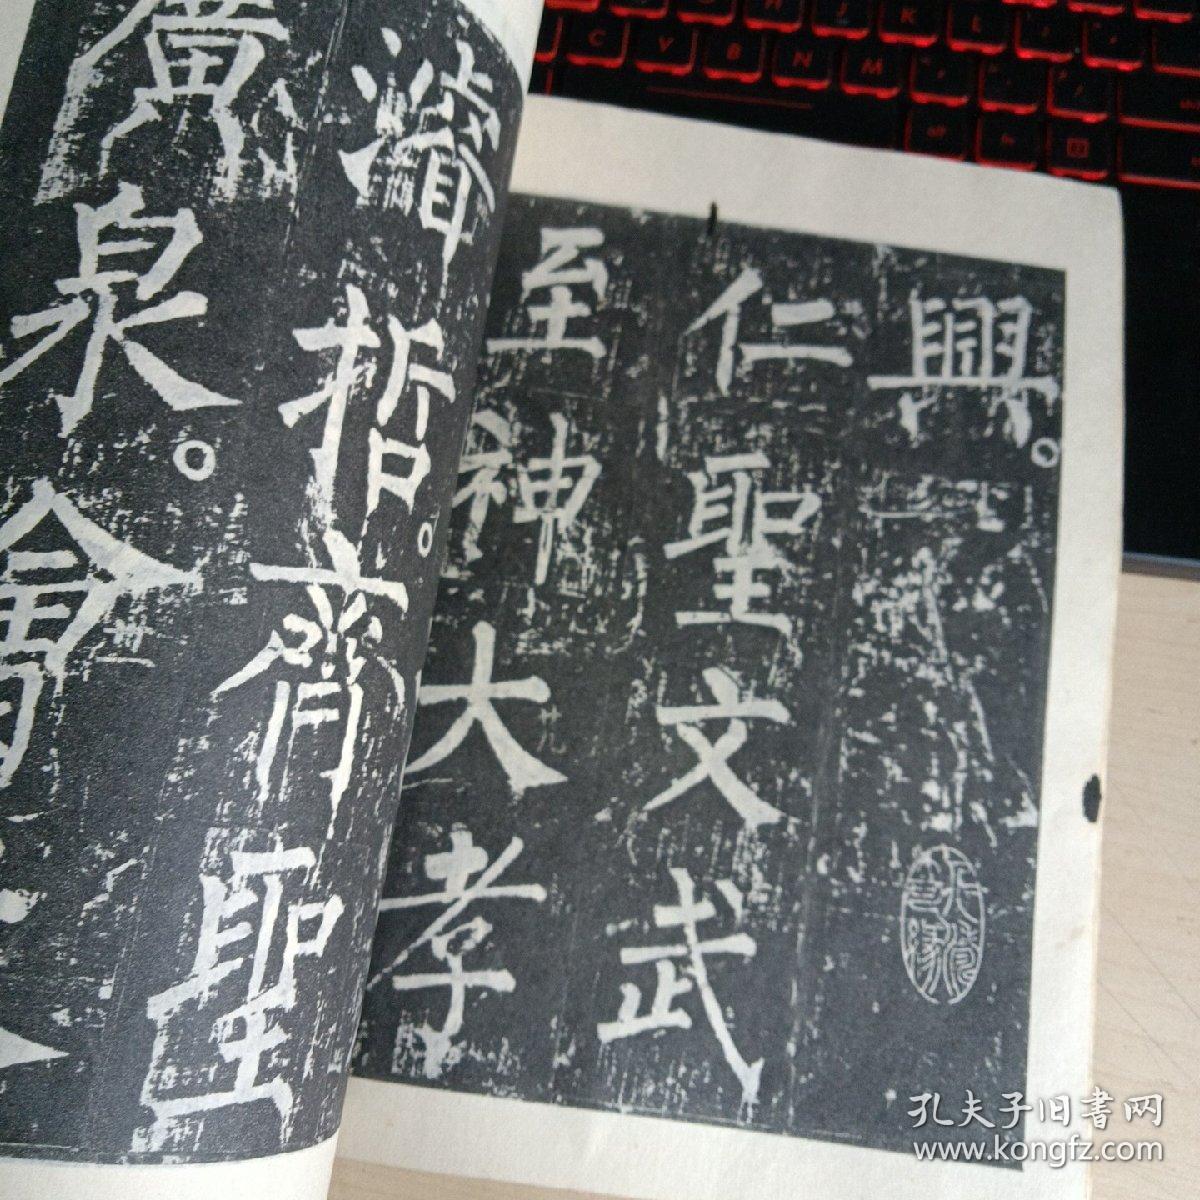 興。
仁聖文武
至神大孝
濬哲。齊聖
廣泉。會
孔夫子旧書网
www.kongfz.com